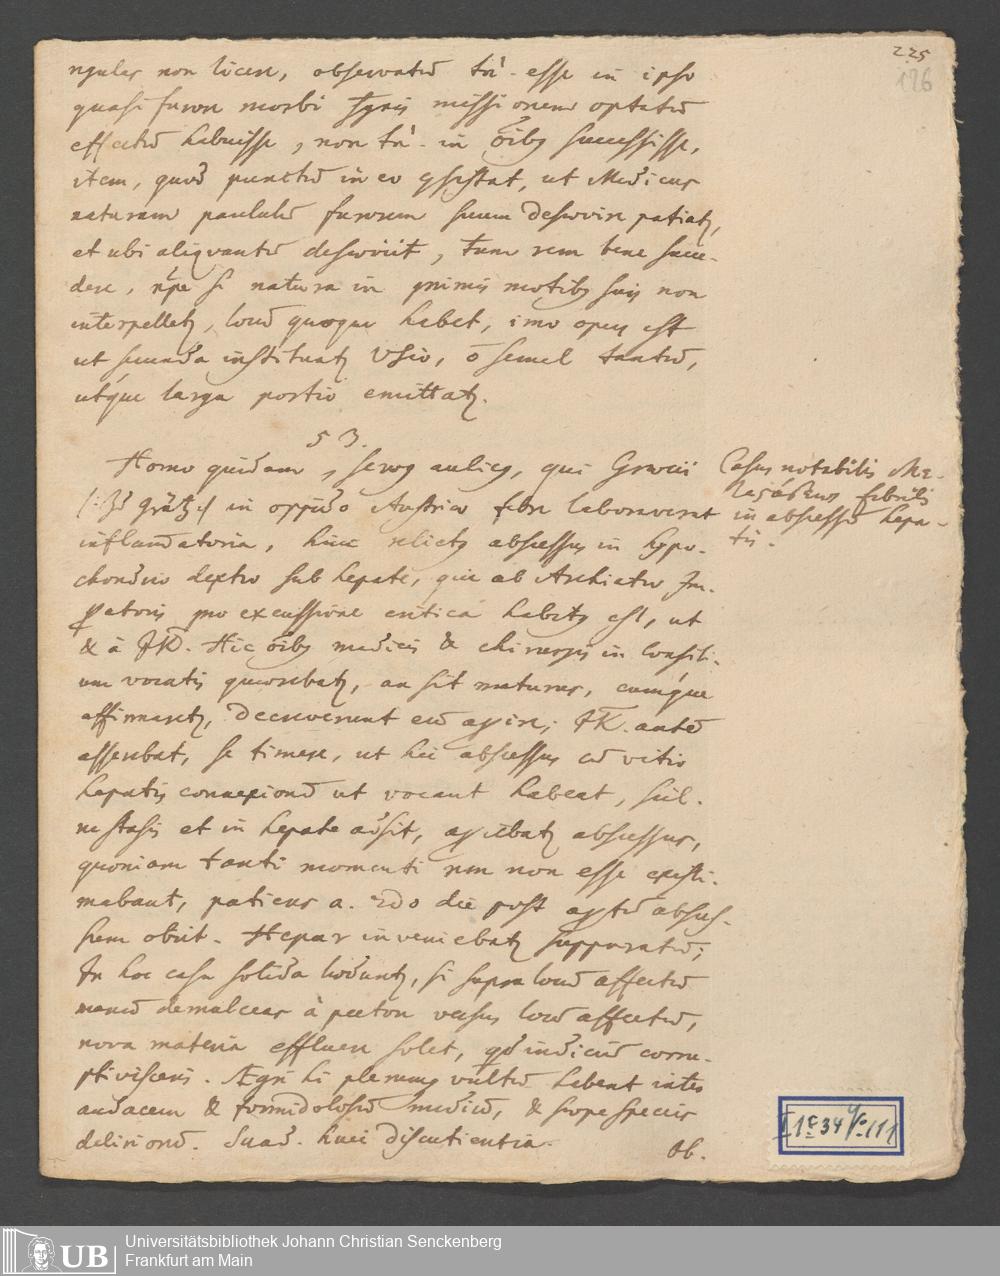 225
126
ngular non licere, observatū tn̄. esse in ipso
quasi furore morbi missionem optatū
effectū habuisse, non tn̄. in oīb⁹ successisse,
item, quod punctū in eo ꝯsistat, ut Medicus
naturam paululū furorem suum patiatꝫ,
et ubi aliqvantū, tum rem bene succe-
dere, nēpe si natura in primis motib⁹ suis non
interpelletꝫ, locū quoque habet, imo opus est
ut secunda instituatꝫ VSio, ō semel tantū,
utque larga portio emittatꝫ.
5 3.
Homo quidam, serv⁹ aulic⁹, qui Graecii
(: Zu Grätz :) in oppido Austriae febre laboraverat
inflam̄atoria, huic relict⁹ abscessus in hypo-
chondrio dextro sub hepate, qui ab Archiatro Im-
peratoris pro excussione critica habit⁹ est, ut
& à. Hic oīb⁹ medicis & chirurgis in consili-
um vocatis quaerebatꝫ, an sit maturus, cumque
affirmaretꝫ, decreverunt eū apire; autē
asserebat, se timere, ut hic abscessus cū vitio
hepatis connexionē ut vocant habeat, scil.
metastasis et in hepate adsit, apiebatꝫ abscessus,
quoniam tanti momenti rem non esse existi-
mabant, patiens a. 2do die post aptū absces-
sum obiit. Hepar inveniebatꝫ suppuratū;
In hoc casu solida, si supra locū affectū
manū demulceas à pectore versus locū affectū,
nova materia effluere solet, qd indiciū corru-
pti visceris. Ægri hi plerumq⁹ vultū habent intēr
audacem & formidolosū mediū, & saepe species
delirionū. Suad. huic discutientia
Ob.
Casus notabilis Me-
febrilis
in abscessū hepa-
tis.
I 1E 34 4/o. 111
UB
Universitätsbibliothek Johann Christian Senckenberg
Frankfurt am Main